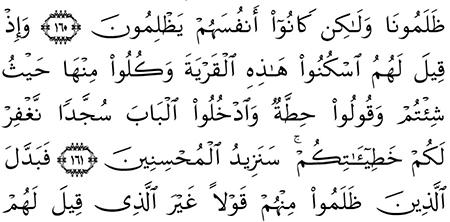 ظَلَمُونَا وَلَـٰكِن كَانُوٓا۟ أَنفُسَهُمْ يَظْلِمُونَ ١٦٠ وَإِذْ
قِيلَ لَهُمُ ٱسْكُنُوا۟ هَـٰذِهِ ٱلْقَرْيَةَ وَكُلُوا۟ مِنْهَا حَيْثُ
شِئْتُمْ وَقُولُوا۟ حِطَّةٌ وَٱدْخُلُوا۟ ٱلْبَابَ سُجَّدًا نَّغْفِرْ
لَكُمْ خَطِيٓـَٔـٰتِكُمْ ۚ سَنَزِيدُ ٱلْمُحْسِنِينَ ١٦١ فَبَدَّلَ
ٱلَّذِينَ ظَلَمُوا۟ مِنْهُمْ قَوْلًا غَيْرَ ٱلَّذِى قِيلَ لَهُمْ